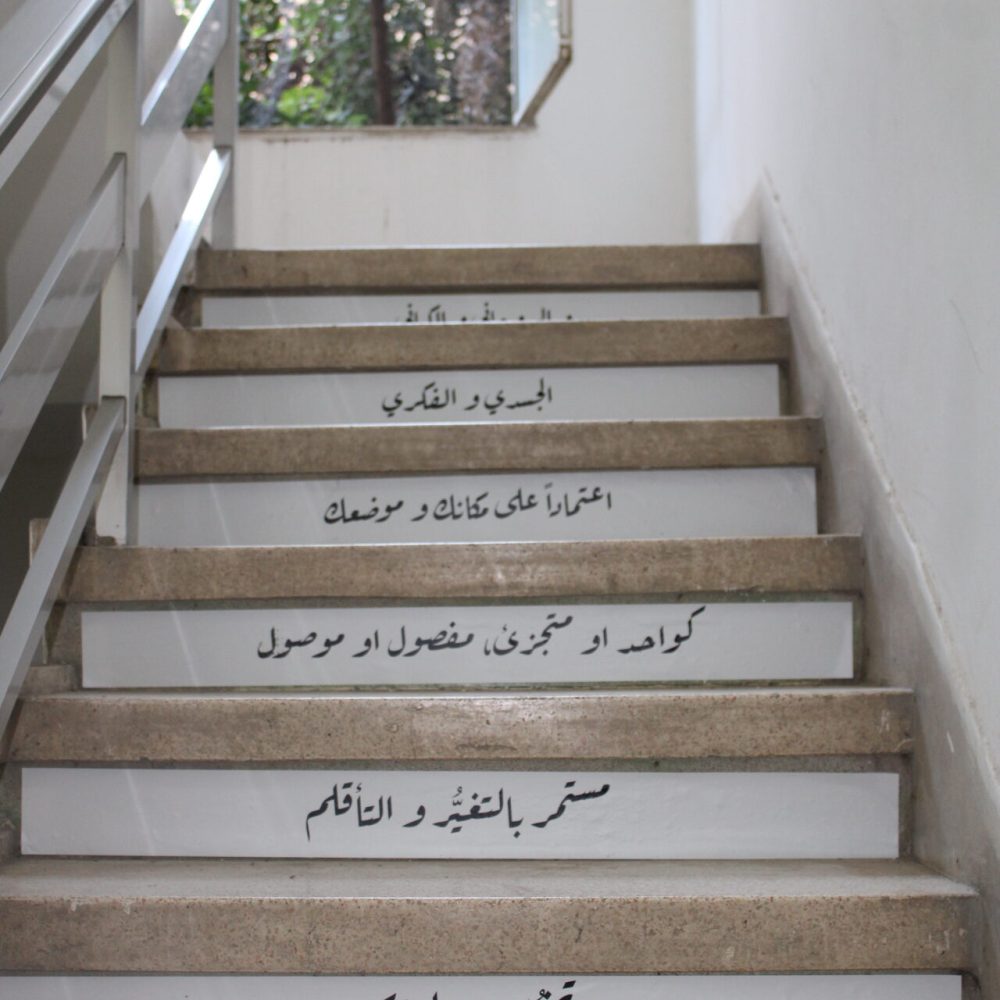 الجسدي و الفكري
اعتماداً على مكانك و موضعك
كواحد او متجزئ، مفصول او موصول
مستمر بالتغيُّر و التأقلم